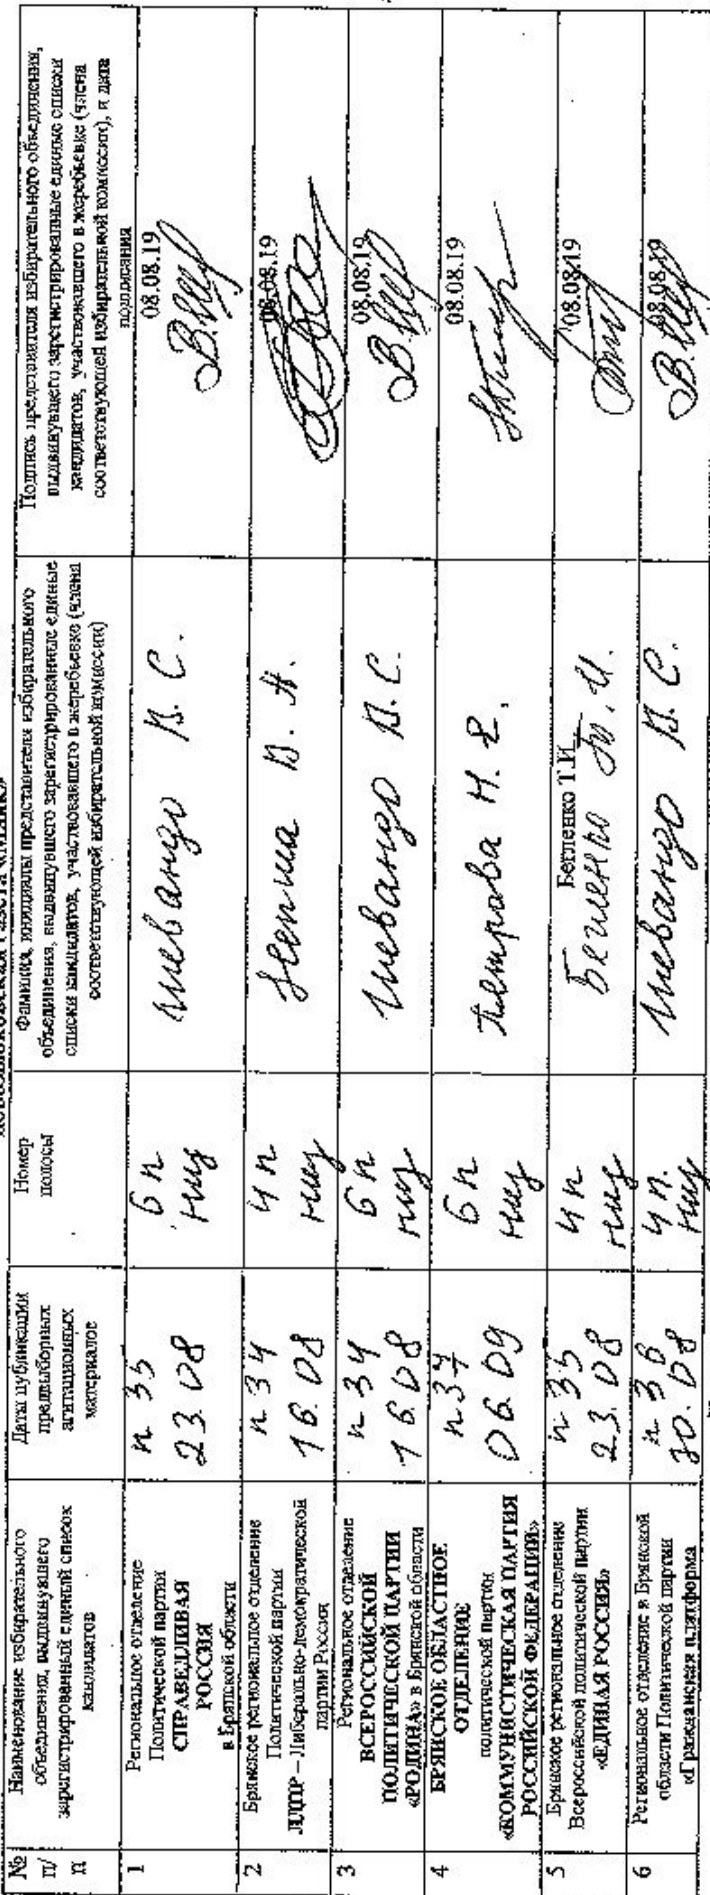 №
п/
п
Наименование избирательного
объединения, выдвинувшего
зарегистрированный единый список
кандидатов
Даты публикации
предвыборных
агитационных
материалов
Номер
полосы
Фамилия, инициалы представителя избирательного
объединения, выдвинувшего зарегистрированные единые
списки кандидатов, участвовавшего в жеребьевке (члена
соответствующей избирательной комиссии)
Подпись представителя избирательного объединения,
выдвинувшего зарегистрированные единые списки
кандидатов, участвовавшего в жеребьевке (члена
соответствующей избирательной комиссии), и дата
подписания
1
Региональное отделение
Политической партии
СПРАВЕДЛИВАЯ
РОССИЯ
в Брянской области
н 35
23.08
6 п
низ
Шевандо В.С.
08.08.19
2
Брянское региональное отделение
Политической партии
ЛДПР – Либерально-демократической
партии России
н 34
16.08
4 п
низ
08.08.19
3
Региональное отделение
ВСЕРОССИЙСКОЙ
ПОЛИТИЧЕСКОЙ ПАРТИИ
«РОДИНА» в Брянской области
н 34
16.08
6 п
низ
Шевандо В.С.
08.08.19
4
БРЯНСКОЕ ОБЛАСТНОЕ
ОТДЕЛЕНИЕ
политической партии
«КОММУНИСТИЧЕСКАЯ ПАРТИЯ
РОССИЙСКОЙ ФЕДЕРАЦИИ»
н 37
06.09
6 п
низ
Петрова Н.Е.
08.08.19
5
Брянское региональное отделение
Всероссийской политической партии
«ЕДИНАЯ РОССИЯ»
н 35
23.08
4 п
низ
Бегленко Т.И.
08.08.19
6
Региональное отделение в Брянской
области Политической партии
«Гражданская платформа
н 36
30.08
4 п.
низ
Шевандо В.С.
08.08.19